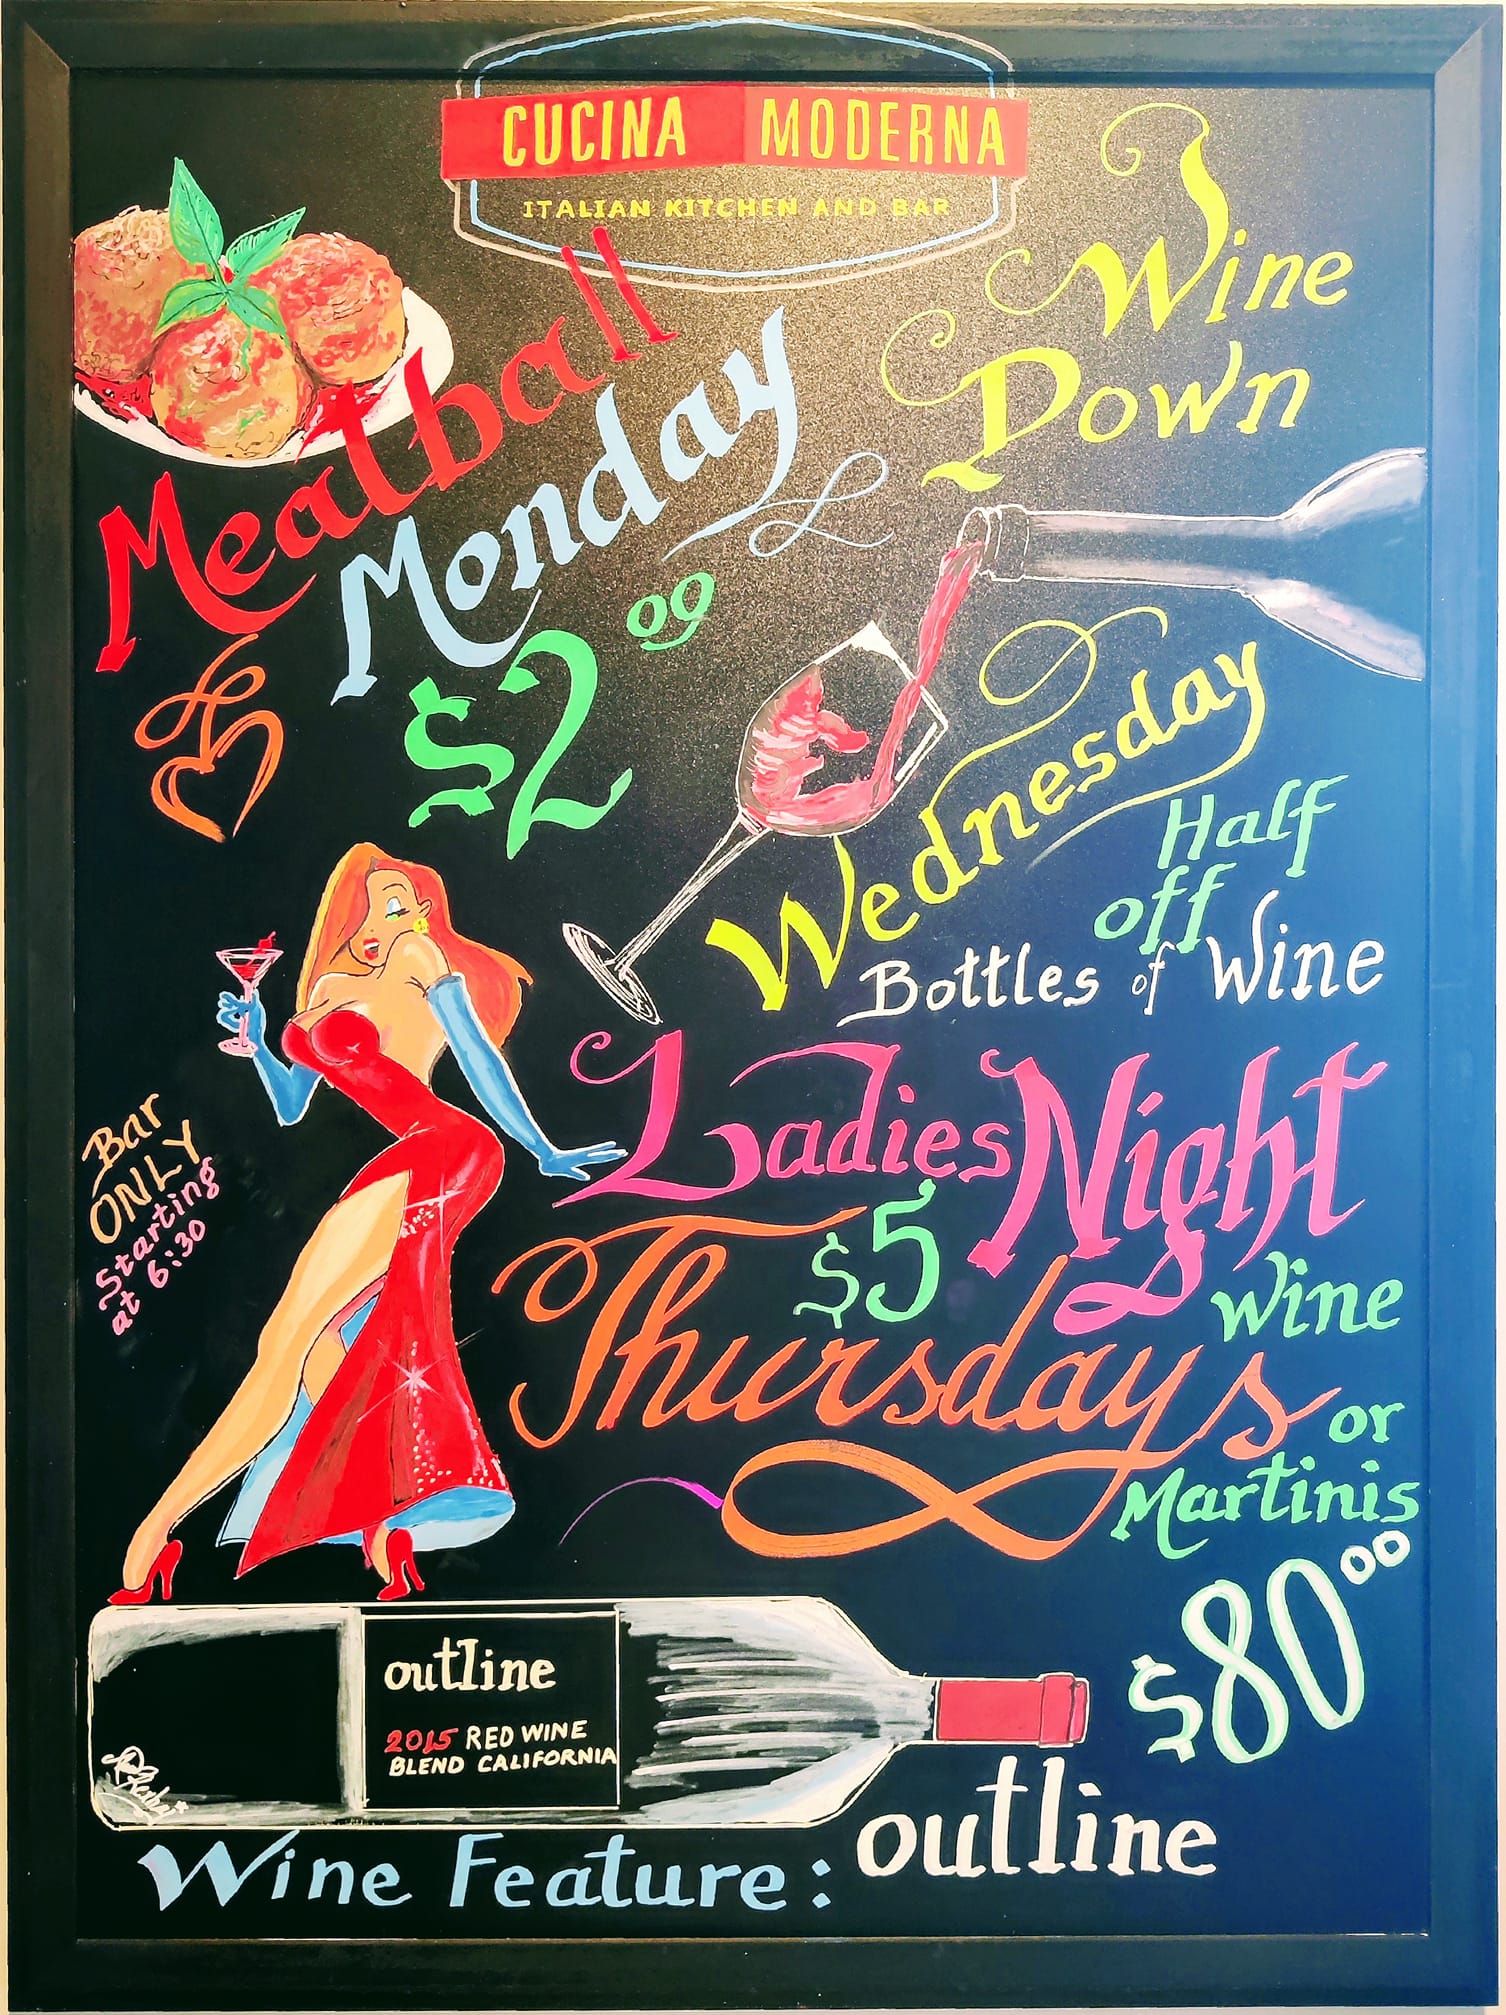 CUCINA MODERNA
ITALIAN KITCHEN AND BAR
Meatball
Monday
$2.00
Wine
Down
Wednesday
Half
off
Bottles of Wine
Ladies Night
Thursdays
$5
Wine
or
Martinis
Bar
ONLY
Starting
at 6:30
$80.00
outline
2015 RED WINE
BLEND CALIFORNIA
Wine Feature: outline